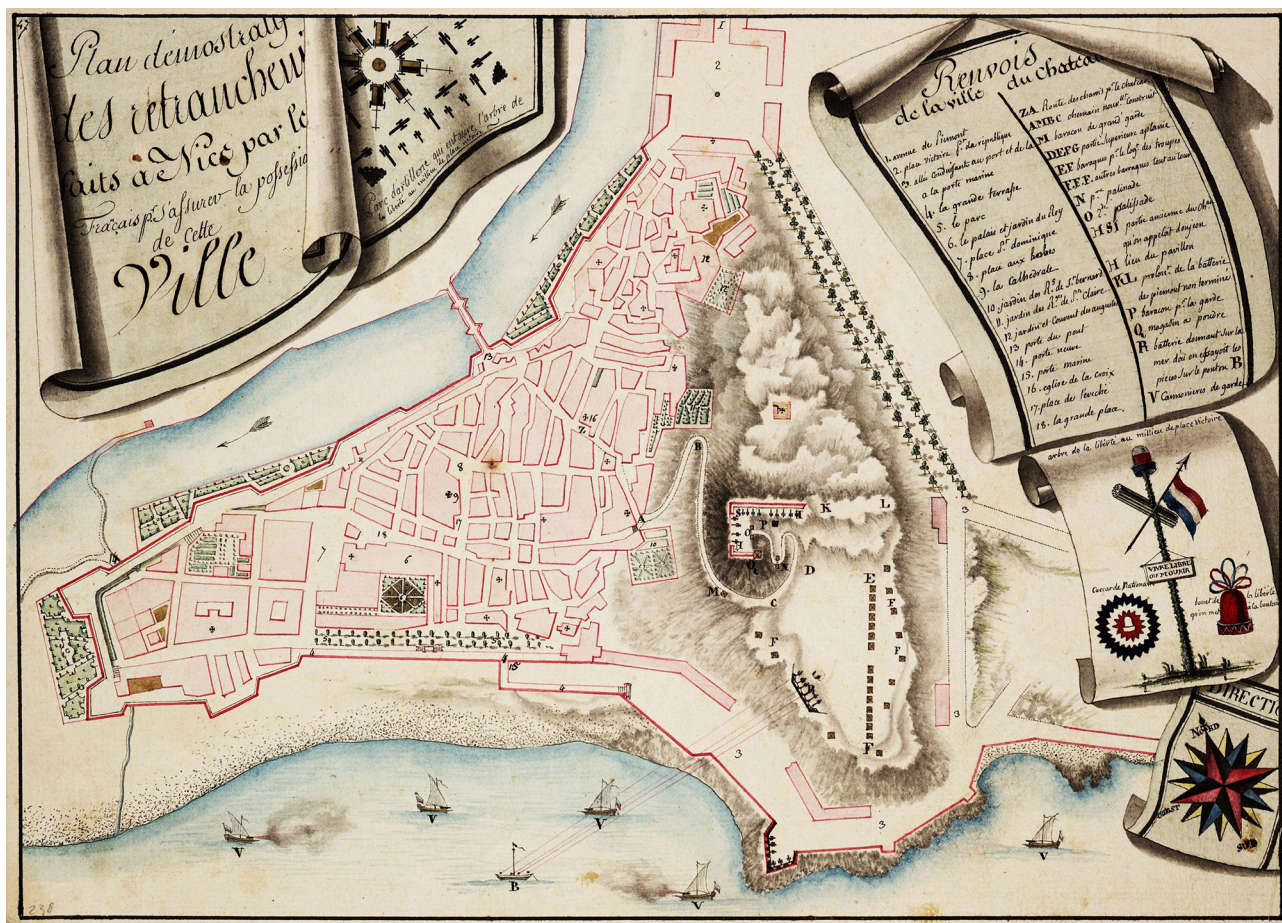 Plan démostratif
des retranchem
faits à Nice par le
Fraçais pr. s'assurer la possessio
de cette
Ville
Parc d'artillerie qui entoure l'arbre de
la liberté au millieu de place victoire
Renvois
de la ville du chateau
1. avenue de Piémont
2. place Victoire St. da republique
3. allé conduisant au port et de la
a la porte marine
4. la grande terrasse
5. le parc
6. le palais et jardin du Roy
7. place St. dominique
8. place aux herbes
9. la Cathedrale
10. jardin des R.s de St. bernard
11. jardin des R.ses de Ste. Claire
12 jardin et Couvent des augustins
13 porte du pont
14. porte neuve
15. porte marine
16. eglise de la croix
17. place de l'evché
18. la grande place.
ZA. Route des chariis pr. le chateau
AMBC chemain nouvt. Construit
M baracon de grand garde
DEFG partie superieure aplanie
EF baraques pr. le logt. des troupes
F.F.F. autres baraques tout au tour
N pre. palissade
O 2e. palissade
HSI partie ancienne du chau.
qu'on appelait donjeon
H lieu du pavillon
KL prolont. de la batterie
de piemont non terminé
P baracon pr. la garde
Q magasin a poudre
R batterie donnant sur la
mer d'où on essayoit les
pieces sur le ponton B
V Cannonieres de garde
arbre de la liberté au millieu de place Victoire
VIVRE LIBRE
OU MOURIR
Cocarde Nationale
bonet de la liberté
qu'on met à la bouton
DIRECTIO
NORD
OUEST
SUD
1
2
3
13
16
Z
8
9
7
18
6
7
A
B
10
M
C
D
K
L
E
F
F
F
F
F
P
O
H
Q
S
4
4
4
4
15
3
3
3
3
V
V
V
V
V
B
238